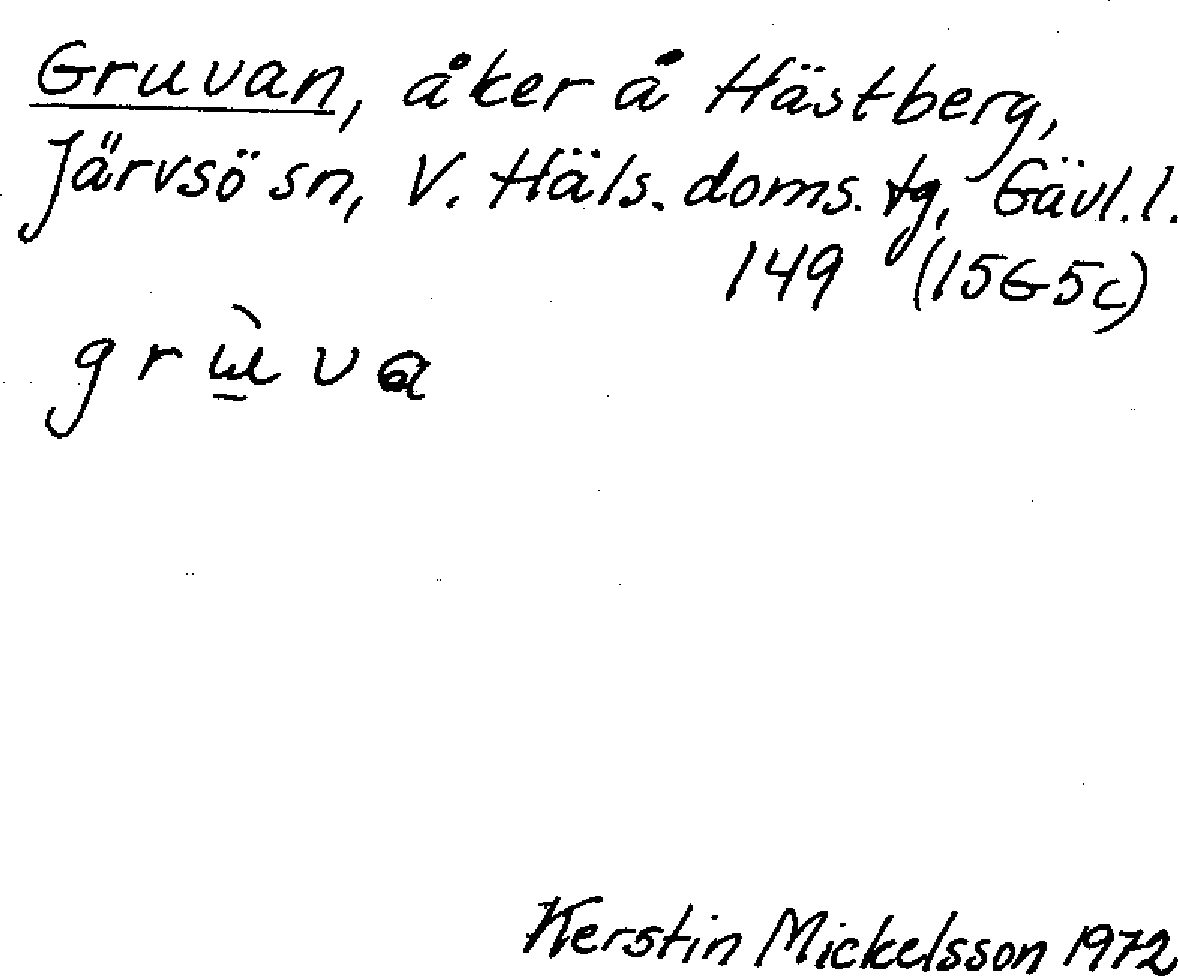 Gruvan, åker å Hästberg,
Järvsö sn, V. Häls. doms. tg, Gävl. l.
149 (15G5c)
grɯ̱̀va
Kerstin Mickelsson 1972